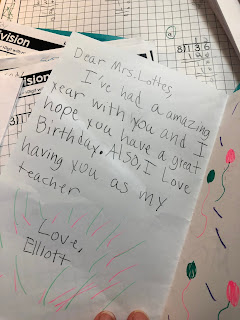 vision
vision
a
8 136
Dear Mrs. Lottes,
I've had a amazing
year with you and I
hope you have a great
Birthday. ALSO, I Love
having you as my
teacher
Love,
Elliott